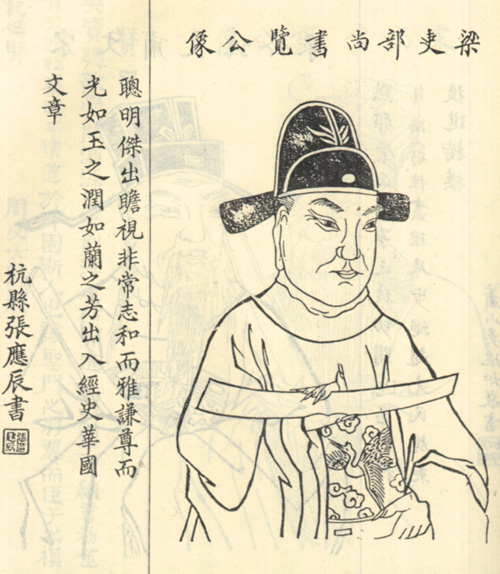 梁吏部尚書覽公像
聰明傑出瞻視非常志和而雅謙尊而
光如玉之潤如蘭之芳出入經史華國
文章
杭縣張應辰書